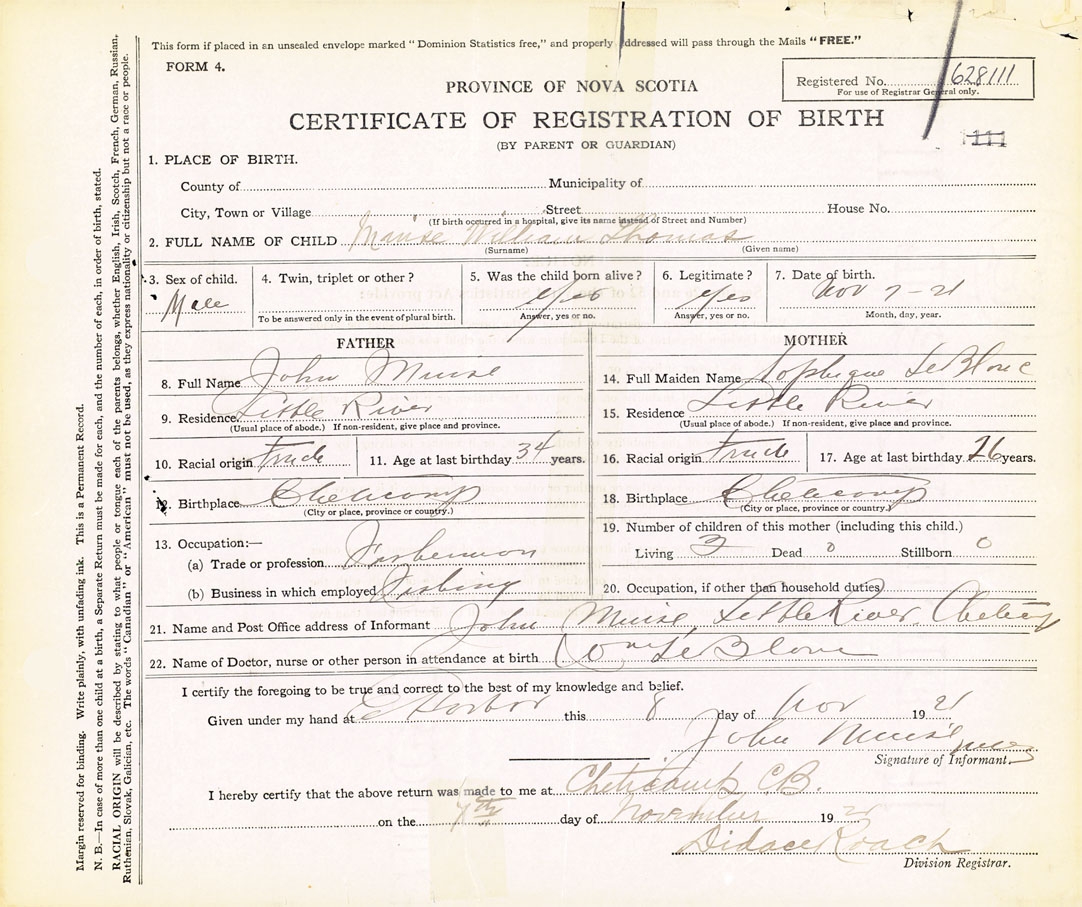 This form if placed in an unsealed envelope marked "Dominion Statistics free," and properly addressed will pass through the Mails "FREE."
FORM 4.
PROVINCE OF NOVA SCOTIA
Registered No. 628111
For use of Registrar General only.
CERTIFICATE OF REGISTRATION OF BIRTH
(BY PARENT OR GUARDIAN)
111
1. PLACE OF BIRTH.
County of Municipality of
City, Town or Village Street House No.
(If birth occurred in a hospital, give its name instead of Street and Number)
2. FULL NAME OF CHILD Muise William Thomas
(Surname) (Given name)
3. Sex of child. Male
4. Twin, triplet or other?
To be answered only in the event of plural birth.
5. Was the child born alive? Yes
Answer, yes or no.
6. Legitimate? Yes
Answer, yes or no.
7. Date of birth. Nov 7-21
Month, day, year.
FATHER
8. Full Name John Muise
9. Residence Little River
(Usual place of abode.) If non-resident, give place and province.
10. Racial origin 11. Age at last birthday 34 years.
12. Birthplace Cheticamp
(City or place, province or country.)
13. Occupation:—
(a) Trade or profession Fisherman
(b) Business in which employed Fishing
MOTHER
14. Full Maiden Name LeBlanc
15. Residence Little River
(Usual place of abode.) If non-resident, give place and province.
16. Racial origin 17. Age at last birthday 26 years.
18. Birthplace Cheticamp
(City or place, province or country.)
19. Number of children of this mother (including this child.)
Living 3 Dead 0 Stillborn 0
20. Occupation, if other than household duties
21. Name and Post Office address of Informant John Muise, Little River, Cheticamp
22. Name of Doctor, nurse or other person in attendance at birth LeBlanc
I certify the foregoing to be true and correct to the best of my knowledge and belief.
Given under my hand at E Harbor this 8 day of Nov 1921
John Muise
Signature of Informant.
I hereby certify that the above return was made to me at Cheticamp C.B.
on the day of November 192
Didace Roach
Division Registrar.
Margin reserved for binding. Write plainly, with unfading ink. This is a Permanent Record.
N. B.—In case of more than one child at a birth, a Separate Return must be made for each, and the number of each, in order of birth, stated.
RACIAL ORIGIN will be described by stating to what people or tongue each of the parents belongs, whether English, Irish, Scotch, French, German, Russian,
Ruthenian, Slovak, Galician, etc. The words "Canadian" or "American" must not be used, as they express nationality or citizenship but not a race or people.